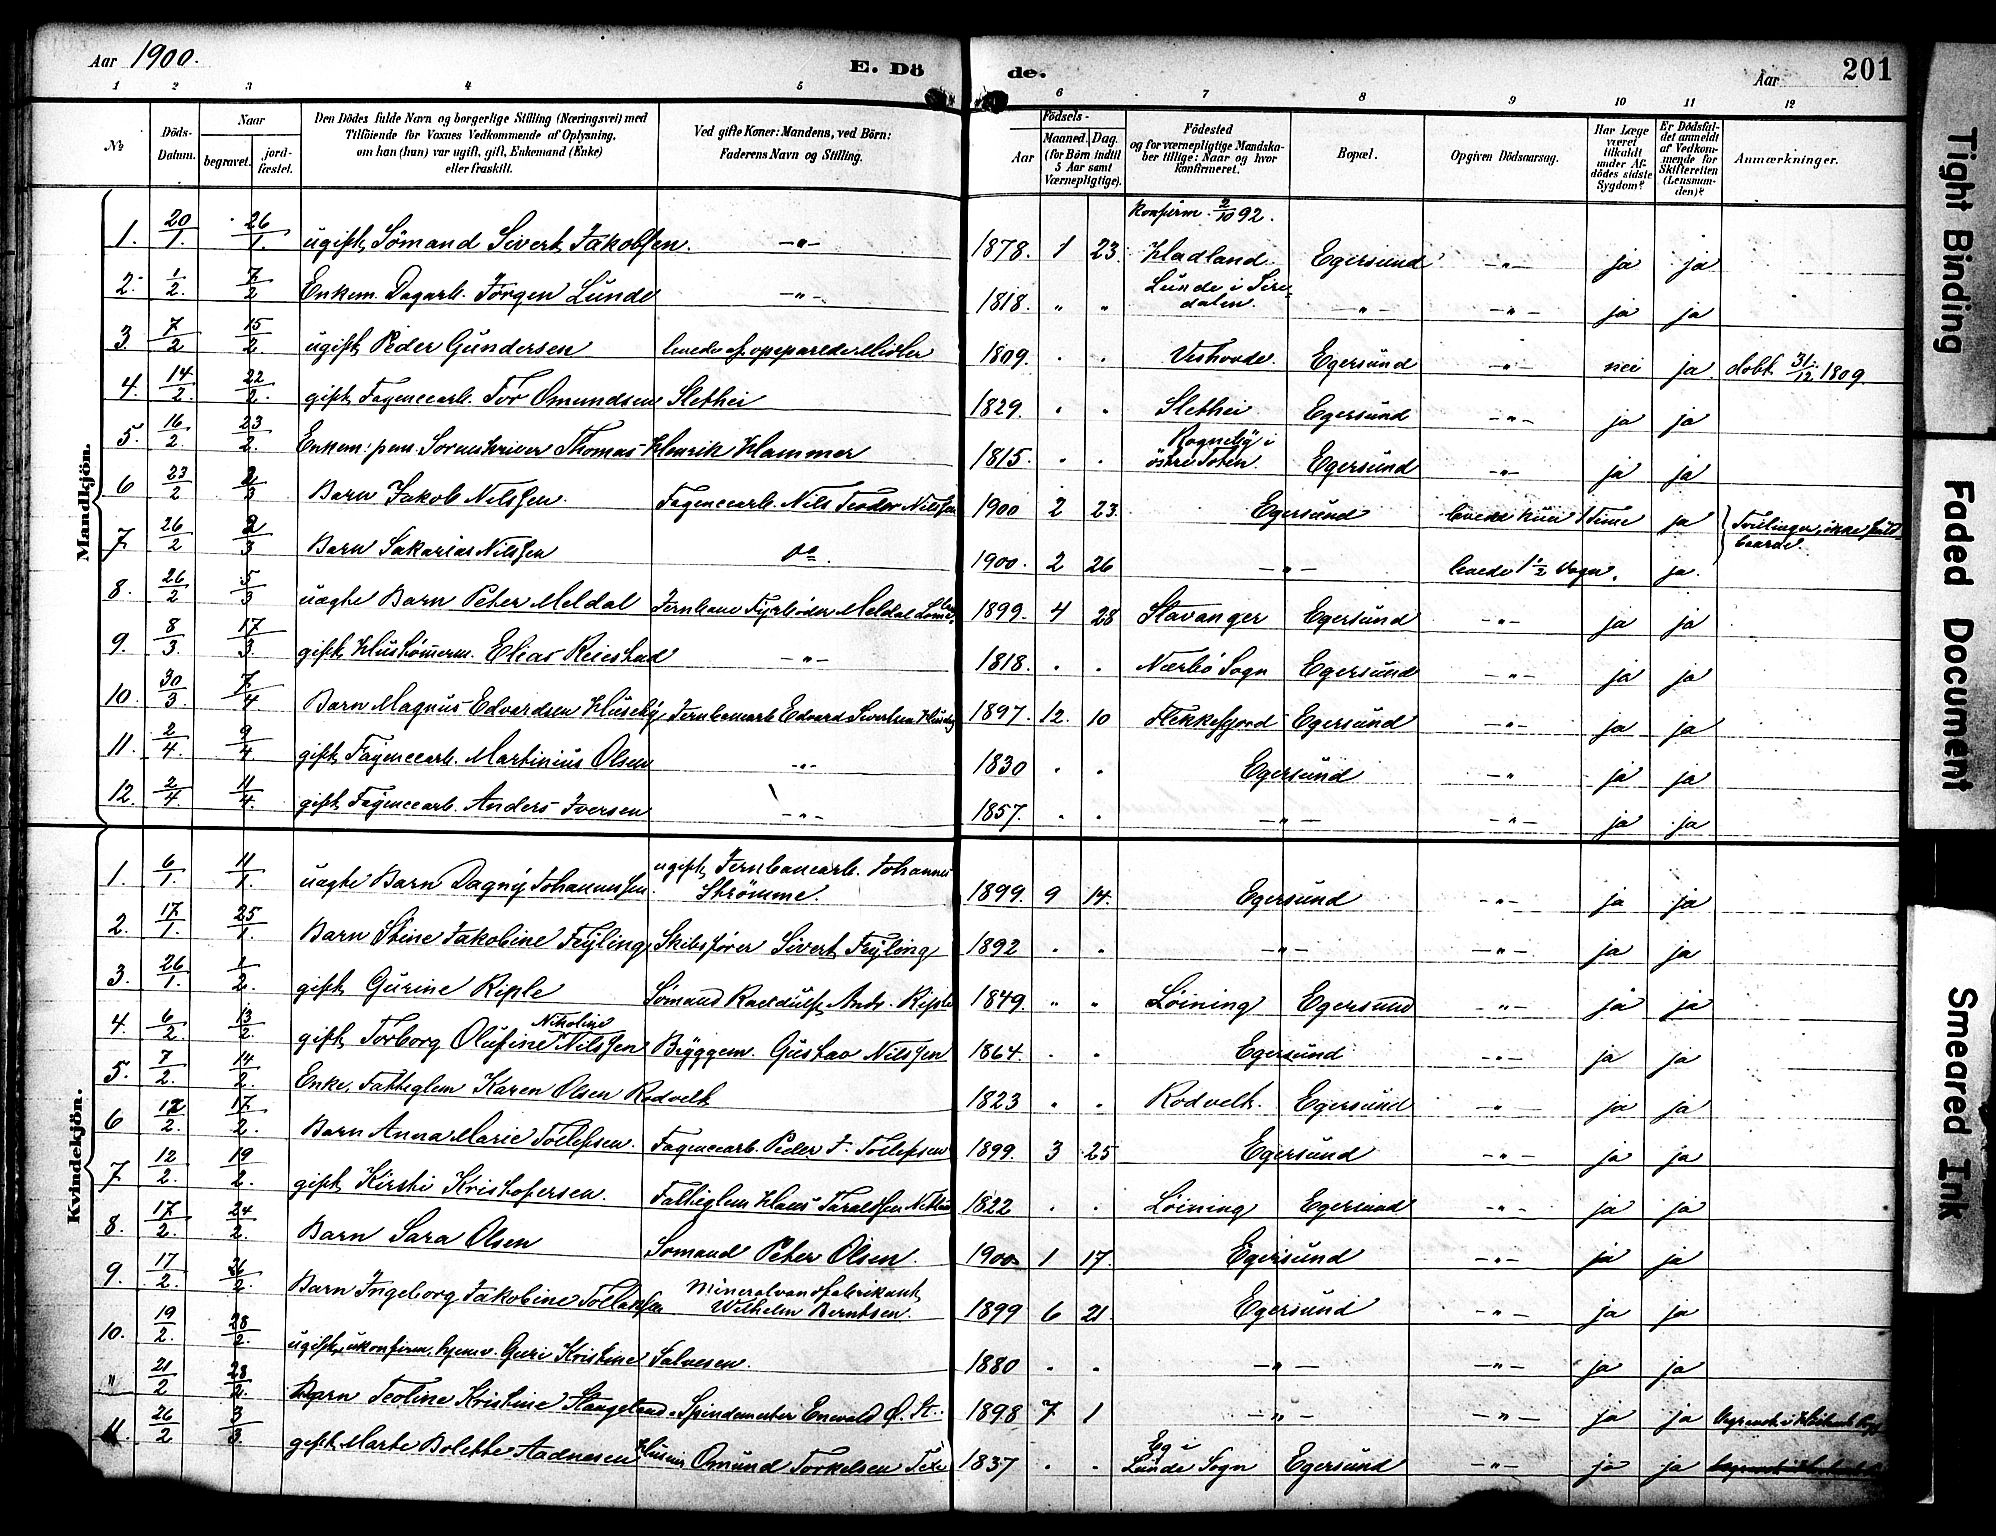 Aar 1900. E. Dö de. Aar 201
1 2 3 4 5 6 7 8 9 10 11 12
№ Döds-Datum. Naar begravet. jord-fæstet. Den Dödes fulde Navn og borgerlige Stilling (Næringsvei) med Tilföiende for Voxnes Vedkommende af Oplysning, om han (hun) var ugift, gift, Enkemand (Enke) eller fraskilt. Ved gifte Koner: Mandens, ved Börn: Faderens Navn og Stilling. Födsels- Aar Maaned. Dag. (for Börn indtil 5 Aar samt Værnepligtige). Födested og for værnepligtige Mandskaber tillige: Naar og hvor konfirmeret. Bopæl. Opgiven Dödsaarsag. Har Læge været tilkaldt under Afdödes sidste Sygdom? Er Dödsfaldet anmeldt af Vedkommende for Skifteretten (Lensmanden)? Anmærkninger.
Mandkjön.
Konfirm. 2/10 92.
1. 20/1. 26/1. ugift Sömand Sivert Jakobsen. -"- 1878. 1 23. Hadland. Egersund -"- ja ja
2. 1/2. 7/2 Enkem. Dagarb. Jørgen Lunde -"- 1818. " " Lunde i Siredalen. -"- -"- ja ja
3. 7/2 15/2 ugift Peder Gundersen levede af opsparede Midler 1809. . . Egersund -"- nei ja døbt 31/12 1809.
4. 14/2. 22/2. gift Fayencearb. Tor Omundsen Slethei 1829. . . Slethei Egersund -"- ja ja
5. 16/2. 23/2. Enkem: pens. Sorenskriver Thomas Henrik Hammer 1815. . . Rogneby i östre Toten. Egersund -"- ja ja
6 23/2 2/3 Barn Jakob Nilssen. Fayencearb. Nils Teodor Nilssen 1900 2 23. Egersund levede kun 1 Time ja Tvillinger, ikke fuldbaarne.
7. 26/2 2/3 Barn Sakarias Nilssen do. 1900. 2 26 -"- levede 1 1/2 Døgn. ja.
8. 26/2 5/3 uægte Barn Peter Meldal Jernbane Fyrbøder Meldal 1899. 4 28 Stavanger Egersund -"- ja ja
9. 8/3 17/3. gift Hustømmerm. Elias Reiestad -"- 1818. . . Nærbö Sogn Egersund -"- ja ja
10. 30/3. 7/4 Barn Magnus Edvardsen Huseby Jernbanearb. Edvard Sivertsen Huseby 1897. 12. 10 Flekkefjord Egersund -"- ja ja
11. 2/4. 9/4 gift Fayencearb. Martinius Olsen -"- 1830 . . Egersund -"- ja ja
12. 2/4 11/4. gift Fayencearb. Anders Iversen -"- 1857. . . -"- -"- ja ja
Kvindekjön.
1. 6/1. 11/1. uægte Barn Dagny Johannessen. ugift Jernbanearb. Johannes Strømme. 1899. 9 14. Egersund -"- ja ja
2. 17/1. 25/1. Barn Stine Jakobine Feyling Skibsfører Sivert Feyling 1892 . . -"- -"- ja ja
3. 26/1. 1/2. gift Gurine Riple Sømand Andr. Riple 1849. " " Løining Egersund -"- ja ja
4. 6/2. 13/2. gift Torborg Olufine Nikoline Nilssen Byggem. Gustav Nilssen 1864. . . Egersund -"- ja ja
5. 7/2. 14/2. Enke, Fattiglem Karen Olsen Rodvelt 1823 . . Rodvelt. Egersund -"- ja ja
6 12/2. 17/2. Barn Anna Marie Tollefsen. Fayencearb. Peder T. Tollefsen 1899. 3 25 Egersund -"- ja ja
7 12/2. 19/2. gift Kirsti Kristofersen. Fattiglem Klaus Taraldsen 1822 . . Løining Egersund -"- ja ja
8. 17/2. 24/2. Barn Sara Olsen Sømand Peter Olsen. 1900 1 17. Egersund -"- ja ja
9. 17/2. 26/2. Barn Ingeborg Jakobine Tollaksen Mineralvandsfabrikant Wilhelm Berntsen. 1899 6 21. Egersund -"- ja ja
10. 19/2. 28/2. ugift, ukonfirm. hjemv. Guri Kristine Salvesen. 1880 . . -"- -"- ja ja
" 21/2 28/2. Barn Teoline Kristine Stangeland Spindemester Enevald Ø. St. 1898 7 1 -"- -"- ja ja
11. 26/2 3/3 gift Marte Bolette Aadnesen Omund Torkelsen 1837 . . Eg i Lunde Sogn Egersund -"- ja ja
Tight Binding
Faded Document
Smeared Ink